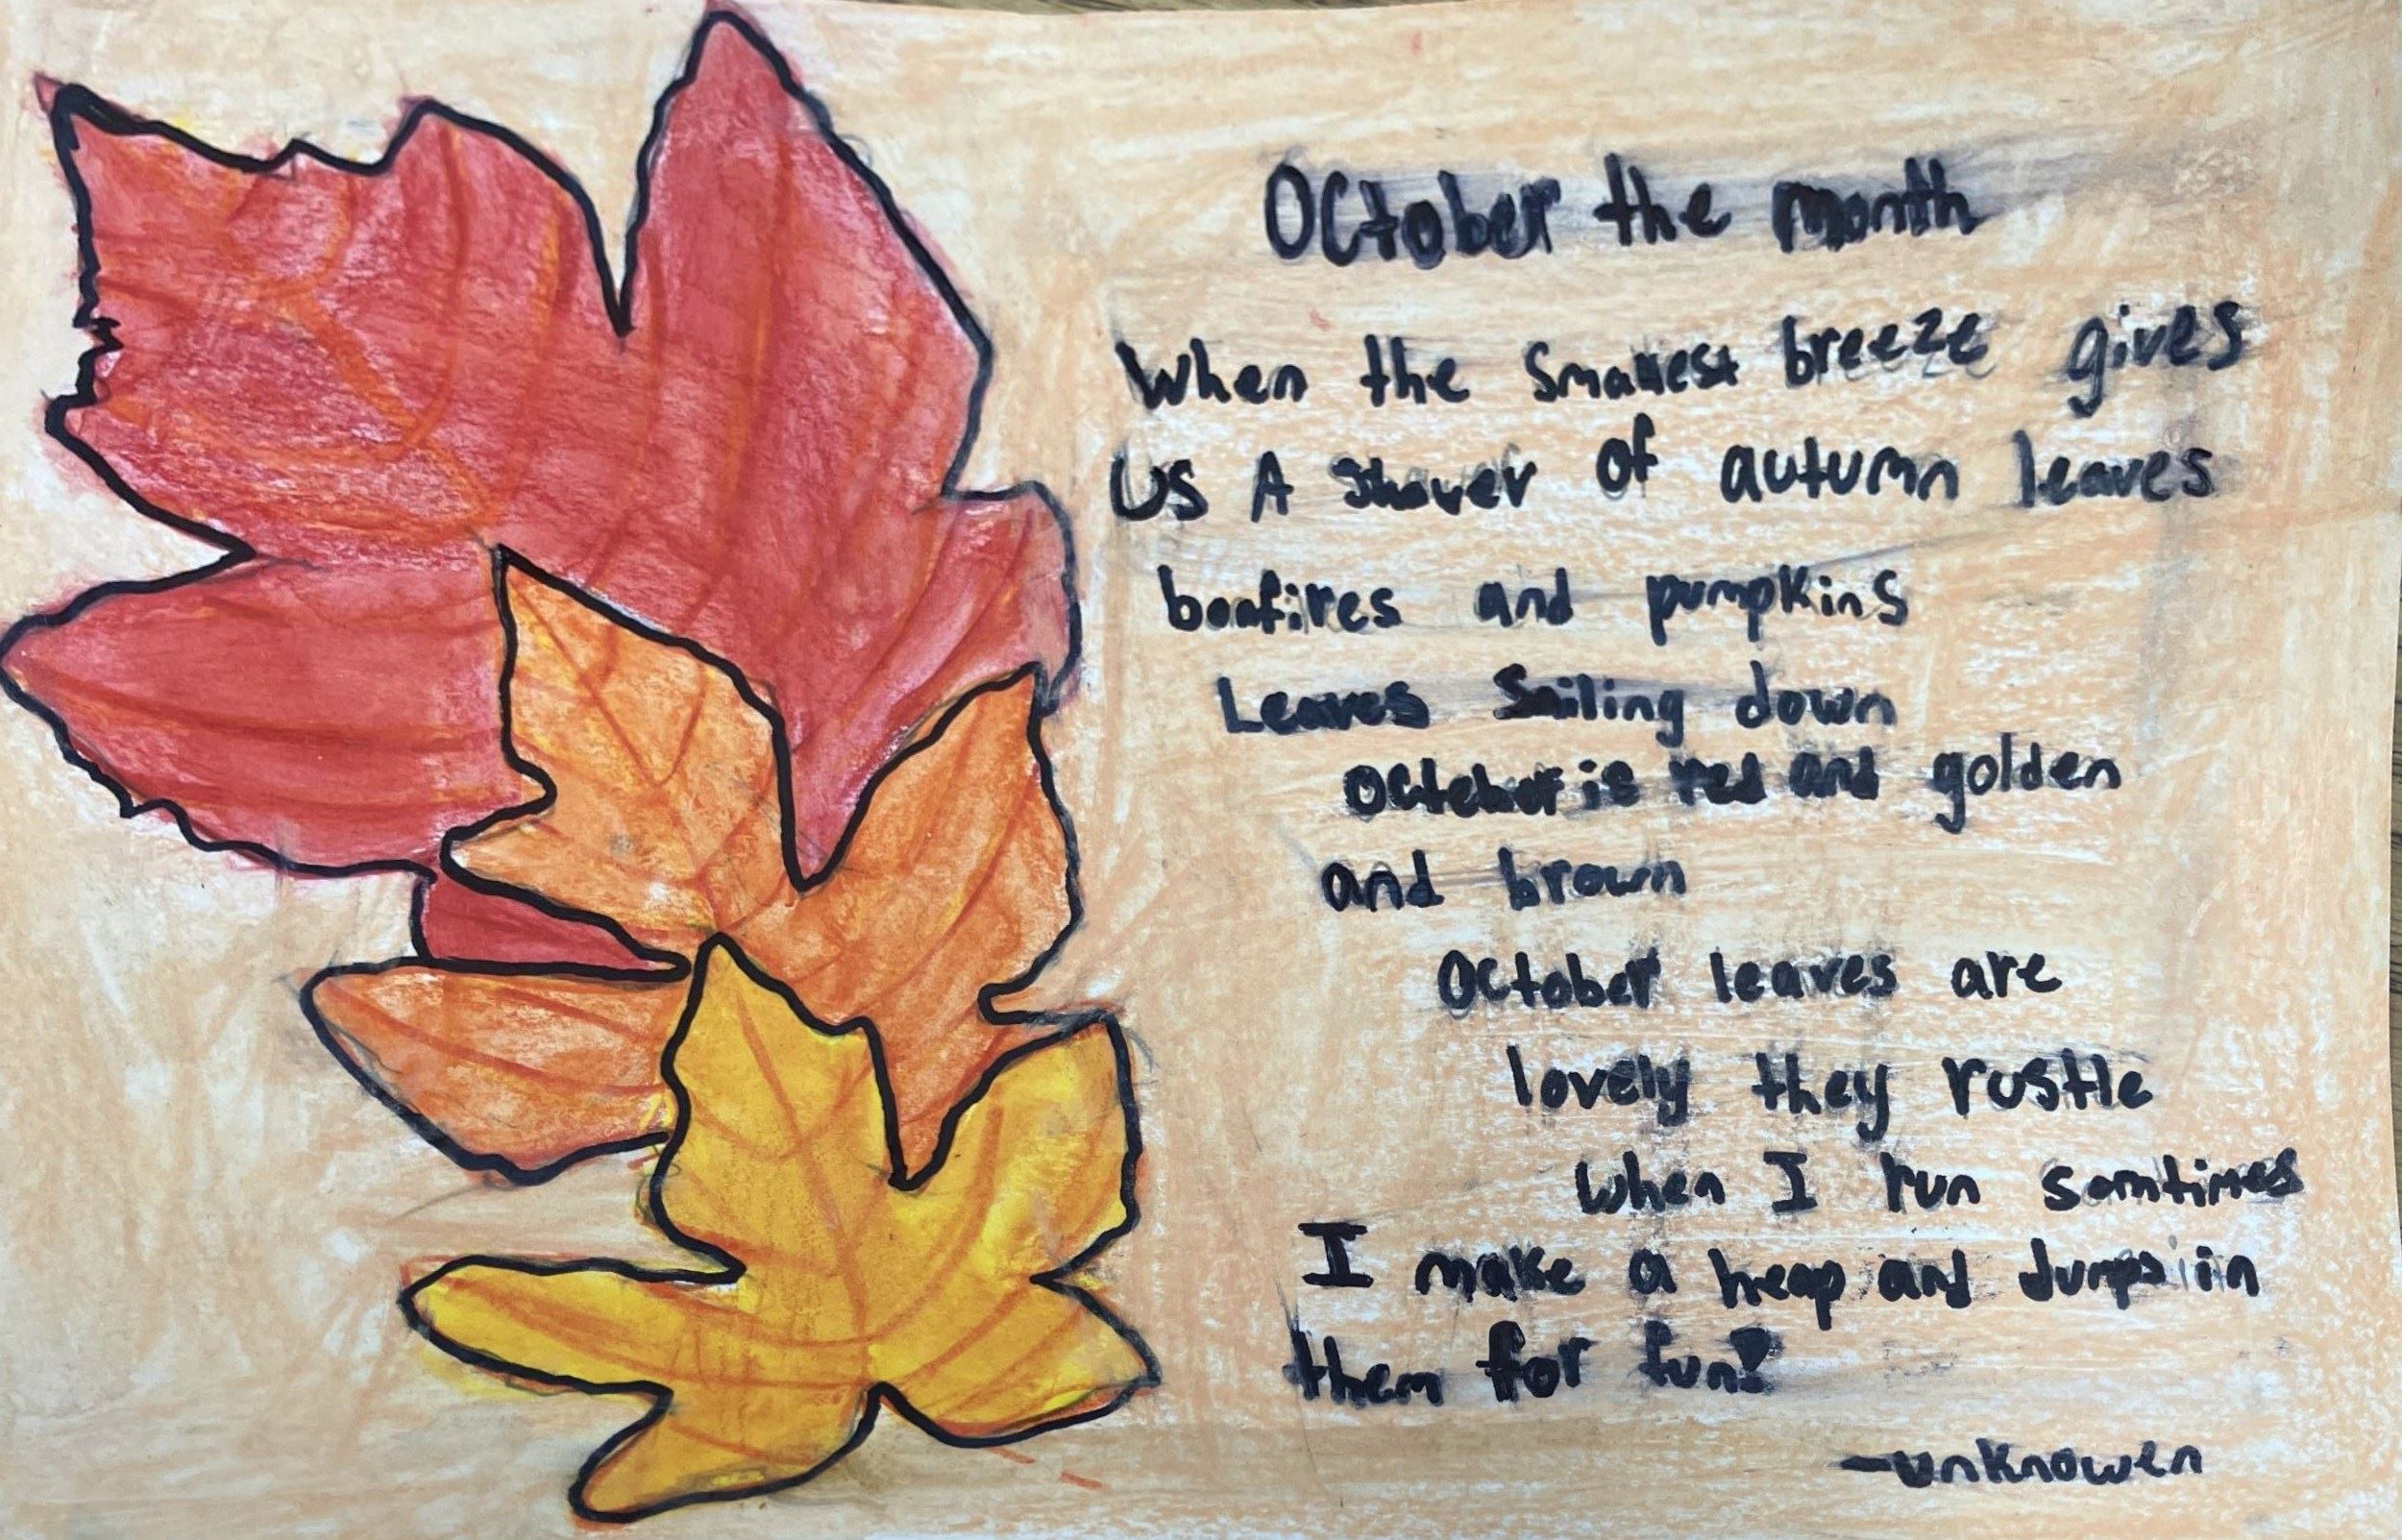 October the month
When the smallest breeze gives
US A shower of autumn leaves
bonfires and pumpkins
Leaves Sailing down
October is red and golden
and brown
October leaves are
lovely they rustle
when I run somtimes
I make a heap and Jump in
them for fun!
-unknowen